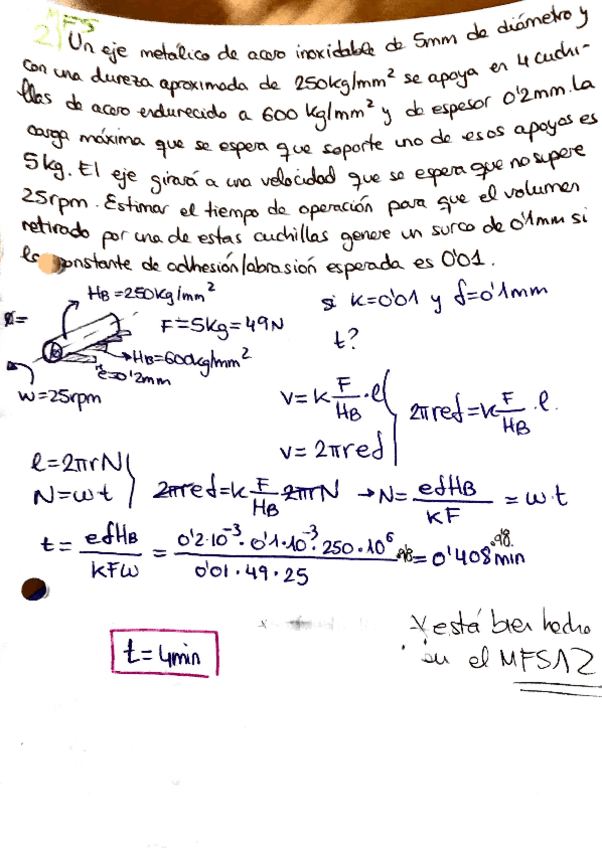 MFS
2) Un eje metálico de acero inoxidable de 5mm de diámetro y
con una dureza aproximada de 250kg/mm² se apoya en 4 cuchi-
llas de acero endurecido a 600 kg/mm² y de espesor 0'2mm. La
carga máxima que se espera que soporte uno de esos apoyos es
5kg. El eje girará a una velocidad que se espera que no supere
25rpm. Estimar el tiempo de operación para que el volumen
retirado por una de estas cuchillas genere un surco de 0'1mm si
la constante de adhesión/abrasión esperada es 0'01.
HB=250kg/mm²
si K=0'01 y f=0'1mm
F=5kg=49N
t?
HB=600kg/mm²
e=0'2mm
w=25rpm
V=K F/HB · l
V=2πref
2πref=K F/HB · l.
l=2πrN
N=wt
2πref=K F/HB 2πrN → N= efHB/KF = w·t
t= efHB/KFW = 0'2·10⁻³·0'1·10⁻³·250·10⁶ 9'8/0'01·49·25 = 0'408min .9'8.
t=4min
Y está bien hecho
en el MFS12